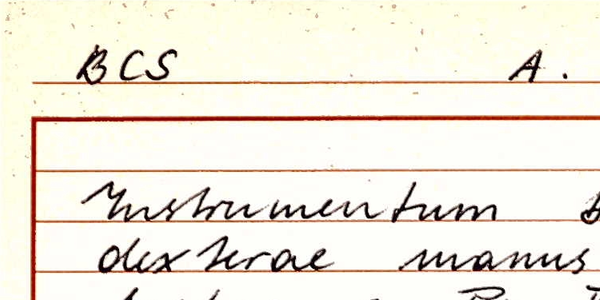 BCS A.
Instrumentum
dexterae manus